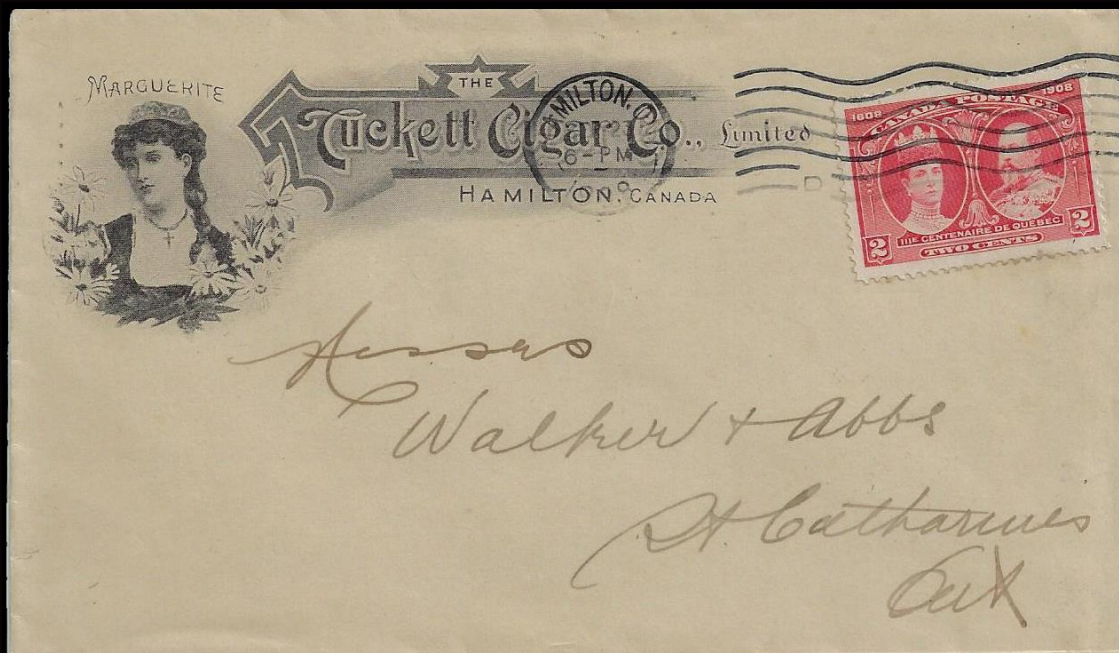 MARGUERITE
THE
Tuckett Cigar Co., Limited
HAMILTON. CANADA
HAMILTON.
6-PM
D
1608 1908
CANADA POSTAGE
IIIE CENTENAIRE DE QUÉBEC
2 2
TWO CENTS
Messrs
Walker + Abbs
St. Catharines
Ont